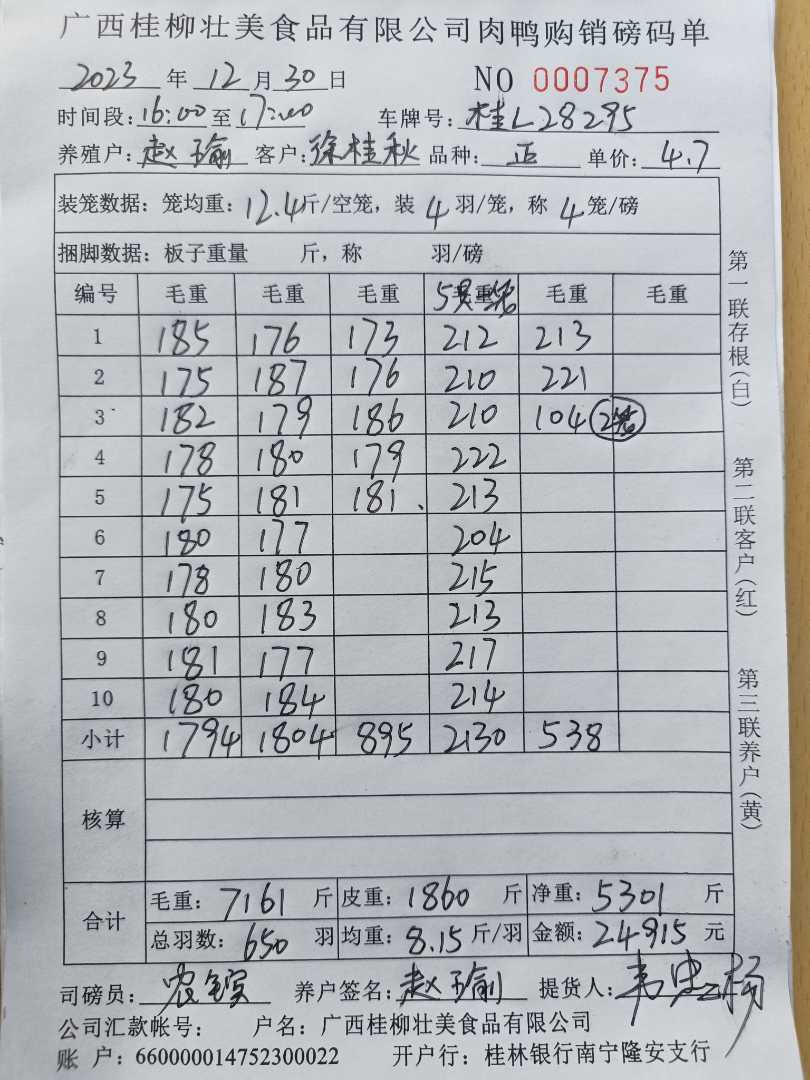 广西桂柳壮美食品有限公司肉鸭购销磅码单
2023 年 12 月 30 日 NO 0007375
时间段:16:00至17:00 车牌号:桂L28295
养殖户:赵瑜 客户:徐桂秋 品种:正 单价:4.7
装笼数据:笼均重:12.4斤/空笼,装 4 羽/笼,称 4 笼/磅
捆脚数据:板子重量 斤,称 羽/磅
编号 毛重 毛重 毛重 5只/笼 毛重 毛重 毛重
1 185 176 173 212 213
2 175 187 176 210 221
3 182 179 186 210 104 2笼
4 178 180 179 222
5 175 181 181. 213
6 180 177 204
7 178 180 215
8 180 183 213
9 181 177 217
10 180 184 214
小计 1794 1804 895 2130 538
核算
合计
毛重:7161 斤 皮重:1860 斤 净重:5301 斤
总羽数:650 羽 均重:8.15 斤/羽 金额:24915 元
司磅员: 养户签名:赵瑜 提货人:
公司汇款帐号: 户名:广西桂柳壮美食品有限公司
账 户:660000014752300022 开户行:桂林银行南宁隆安支行
第一联存根(白)
第二联客户(红)
第三联养户(黄)